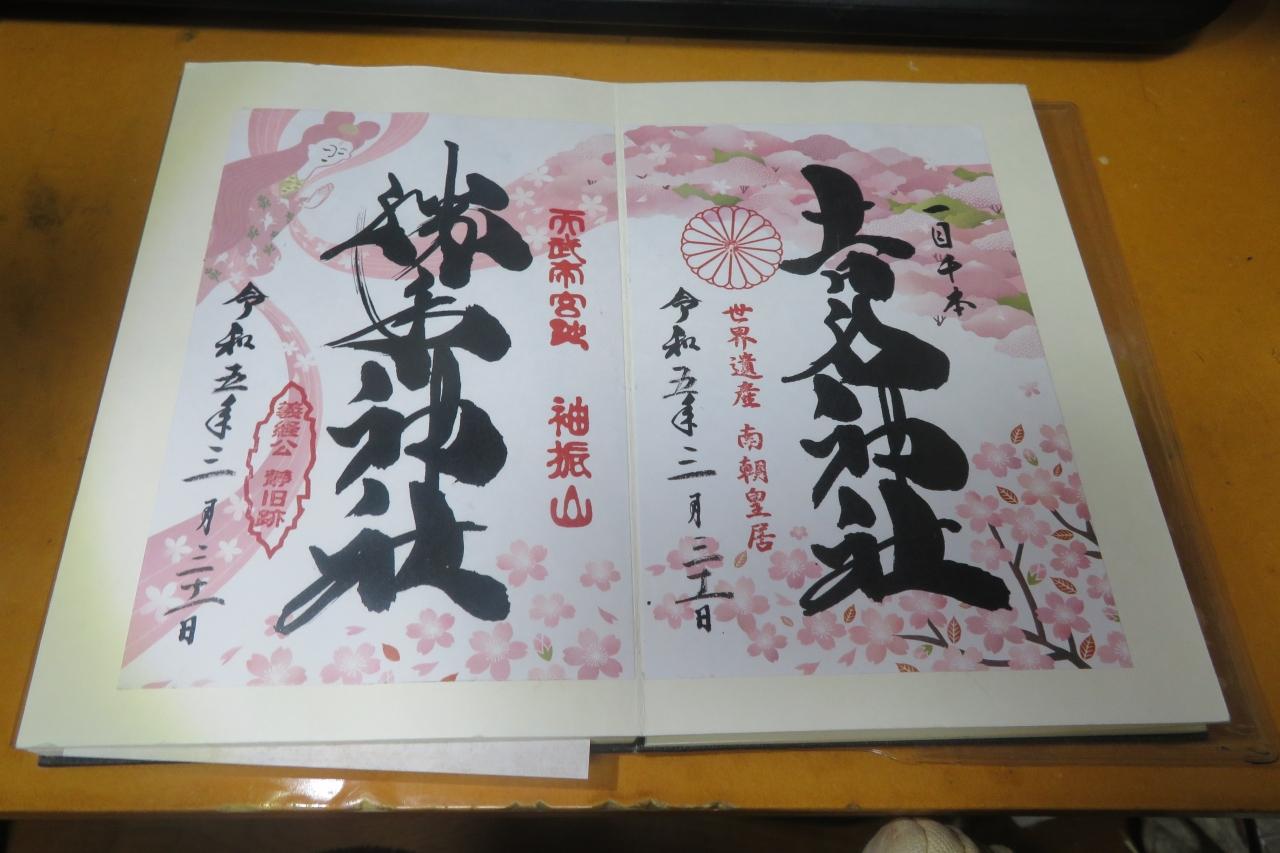 一目千本
吉水神社
世界遺産 南朝皇居
令和五年三月三十一日
天武帝宮跡 袖振山
勝手神社
義経公 静旧跡
令和五年三月三十一日